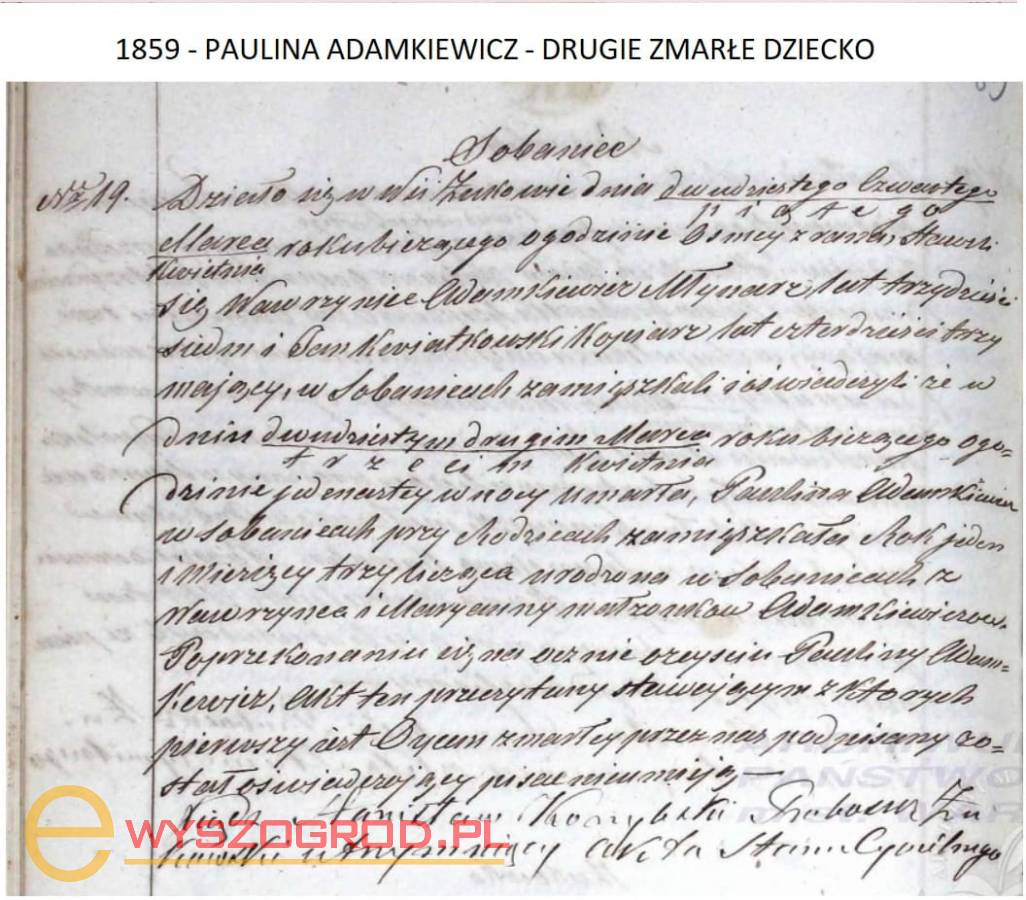 1859 - PAULINA ADAMKIEWICZ - DRUGIE ZMARŁE DZIECKO
Sobanice
Nr 19. Działo się w Wsi Żukowie dnia dwudziestego Czwartego
piątego
Marca roku bieżącego o godzinie Osmej z rana, Stawili
Kwietnia
się Wawrzyniec Adamkiewicz Młynarz lat trzydzieści
siedm i Jan Kwiatkowski Kopiarz lat czterdzieści trzy
mający, w Sobanicach zamięszkali i oświadczyli że w
dniu dwudziestym drugim Marca roku bieżącego ogo-
trzecim Kwietnia
dzinie jedenastey w nocy umarła, Paulina Adamkiewicz
w Sobanicach przy Rodzicach zamięszkała Rok jeden
i Mięsięcy trzy licząca urodzona w Sobanicach z
Wawrzynca i Maryanny małżonków Adamkiewiczow.
Po przekonaniu się na ocznie o zeyściu Pauliny Adam-
kewicz, Akt ten przeczytany stawającym z ktorych
pierwszy jest Oycem zmarłey przez nas podpisany zo-
stał oświadczający pisać nieumieją —
Xiądz Komybski Proboszcz Żu
kowski utrzymujący Akta Stanu Cywilnego
e WYSZOGROD.PL
PAŃSTWO